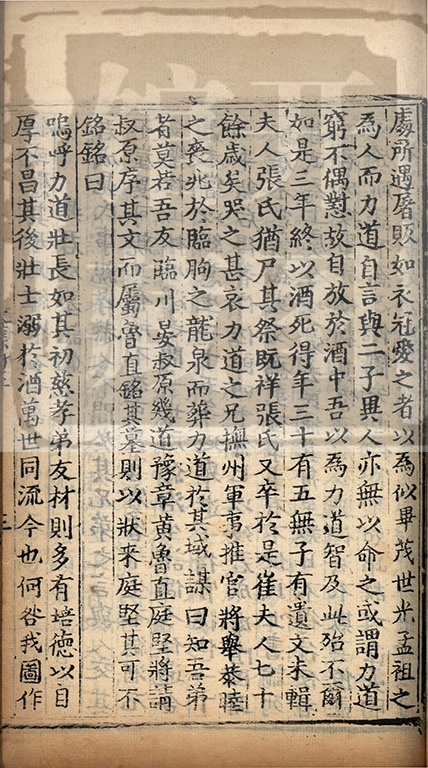 處所遇屠販如衣冠愛之者以爲似畢茂世光孟祖之
爲人而力道自言與二子異人亦無以命之或謂力道
窮不偶懟故自放於酒中吾以爲力道智及此殆不爾
如是三年終以酒死得年三十有五無子有遺文未輯
夫人張氏猶尸其祭既祥張氏又卒於是崔夫人七十
餘歲矣哭之甚哀力道之兄撫州軍事推官將舉恭睦
之喪兆於臨朐之龍泉而葬力道於其域謀曰知吾弟
者莫若吾友臨川晏叔原幾道豫章黃魯直庭堅將請
叔原序其文而屬魯直銘其墓則以狀來庭堅其可不
銘銘曰
嗚呼力道壯長如其初慈孝弟友材則多有培德以自
厚不昌其後壯士溺於酒萬世同流今也何咎我圖作